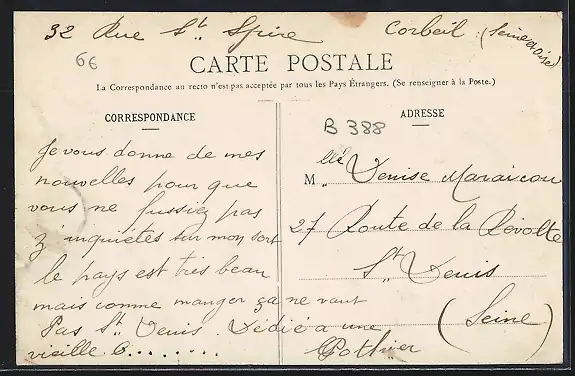 32 Rue St. Spire Corbeil (Seine et Oise)
66
CARTE POSTALE
La Correspondance au recto n'est pas acceptée par tous les Pays Étrangers. (Se renseigner à la Poste.)
CORRESPONDANCE
Je vous donne de mes
nouvelles pour que
vous ne fussiez pas
z'inquiétes sur mon sort
le pays est très beau
mais comme manger ça ne vaut
Pas St. Denis. Dédié a une
vieille C........
ADRESSE
B 388
Mlle Denise Maraicou
27 Route de la Révolte
St. Denis
(Seine)
Pothier